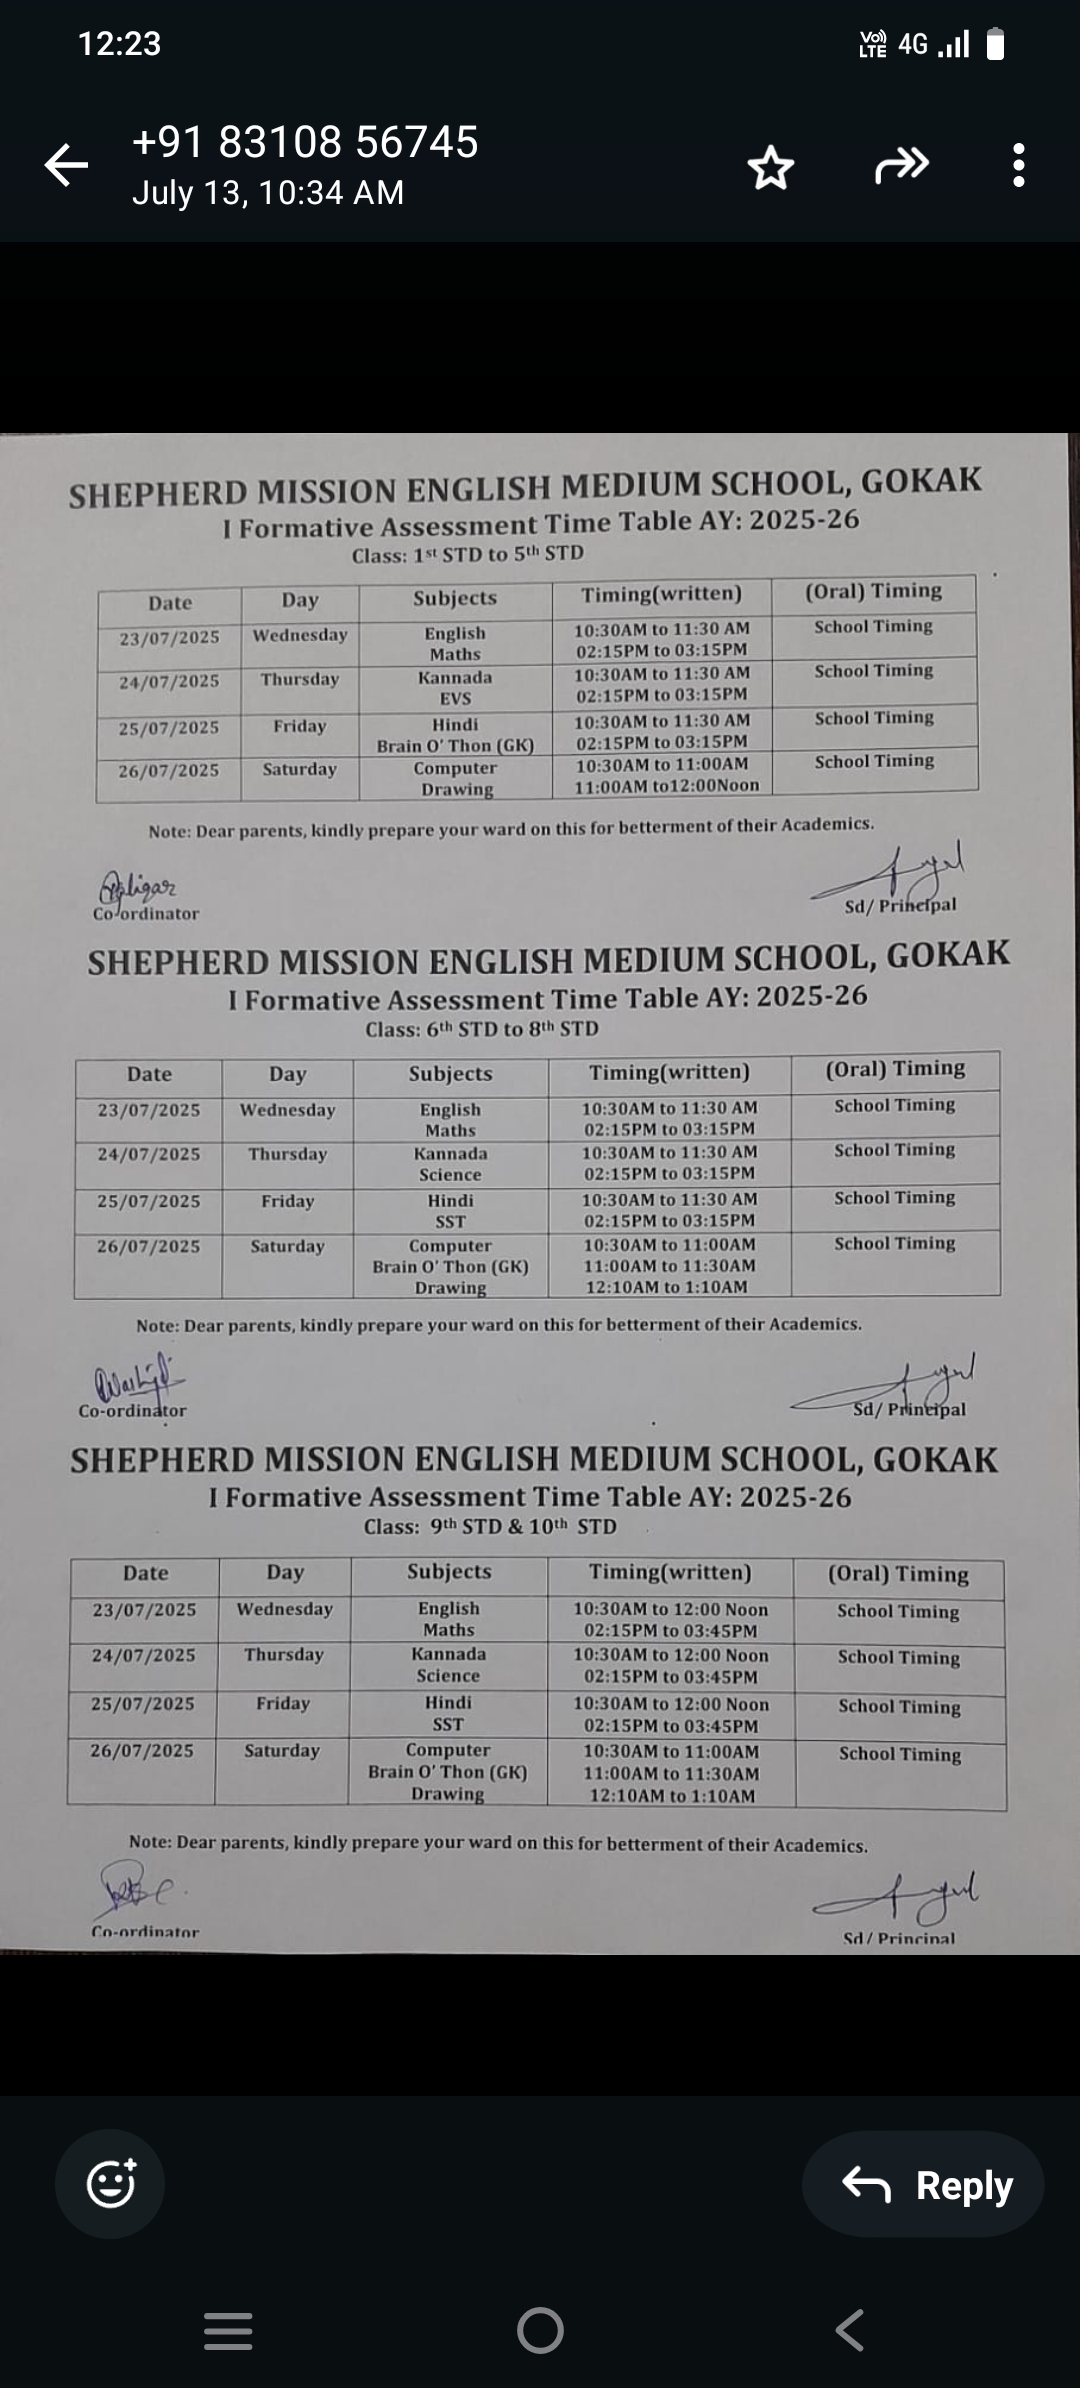 12:23
Vo)) LTE 4G
+91 83108 56745
July 13, 10:34 AM
SHEPHERD MISSION ENGLISH MEDIUM SCHOOL, GOKAK
I Formative Assessment Time Table AY: 2025-26
Class: 1st STD to 5th STD
Date Day Subjects Timing(written) (Oral) Timing
23/07/2025 Wednesday English 10:30AM to 11:30 AM School Timing
Maths 02:15PM to 03:15PM
24/07/2025 Thursday Kannada 10:30AM to 11:30 AM School Timing
EVS 02:15PM to 03:15PM
25/07/2025 Friday Hindi 10:30AM to 11:30 AM School Timing
Brain O' Thon (GK) 02:15PM to 03:15PM
26/07/2025 Saturday Computer 10:30AM to 11:00AM School Timing
Drawing 11:00AM to12:00Noon
Note: Dear parents, kindly prepare your ward on this for betterment of their Academics.
Co-ordinator Sd/ Principal
SHEPHERD MISSION ENGLISH MEDIUM SCHOOL, GOKAK
I Formative Assessment Time Table AY: 2025-26
Class: 6th STD to 8th STD
Date Day Subjects Timing(written) (Oral) Timing
23/07/2025 Wednesday English 10:30AM to 11:30 AM School Timing
Maths 02:15PM to 03:15PM
24/07/2025 Thursday Kannada 10:30AM to 11:30 AM School Timing
Science 02:15PM to 03:15PM
25/07/2025 Friday Hindi 10:30AM to 11:30 AM School Timing
SST 02:15PM to 03:15PM
26/07/2025 Saturday Computer 10:30AM to 11:00AM School Timing
Brain O' Thon (GK) 11:00AM to 11:30AM
Drawing 12:10AM to 1:10AM
Note: Dear parents, kindly prepare your ward on this for betterment of their Academics.
Co-ordinator Sd/ Principal
SHEPHERD MISSION ENGLISH MEDIUM SCHOOL, GOKAK
I Formative Assessment Time Table AY: 2025-26
Class: 9th STD & 10th STD
Date Day Subjects Timing(written) (Oral) Timing
23/07/2025 Wednesday English 10:30AM to 12:00 Noon School Timing
Maths 02:15PM to 03:45PM
24/07/2025 Thursday Kannada 10:30AM to 12:00 Noon School Timing
Science 02:15PM to 03:45PM
25/07/2025 Friday Hindi 10:30AM to 12:00 Noon School Timing
SST 02:15PM to 03:45PM
26/07/2025 Saturday Computer 10:30AM to 11:00AM School Timing
Brain O' Thon (GK) 11:00AM to 11:30AM
Drawing 12:10AM to 1:10AM
Note: Dear parents, kindly prepare your ward on this for betterment of their Academics.
Co-ordinator Sd/ Principal
Reply